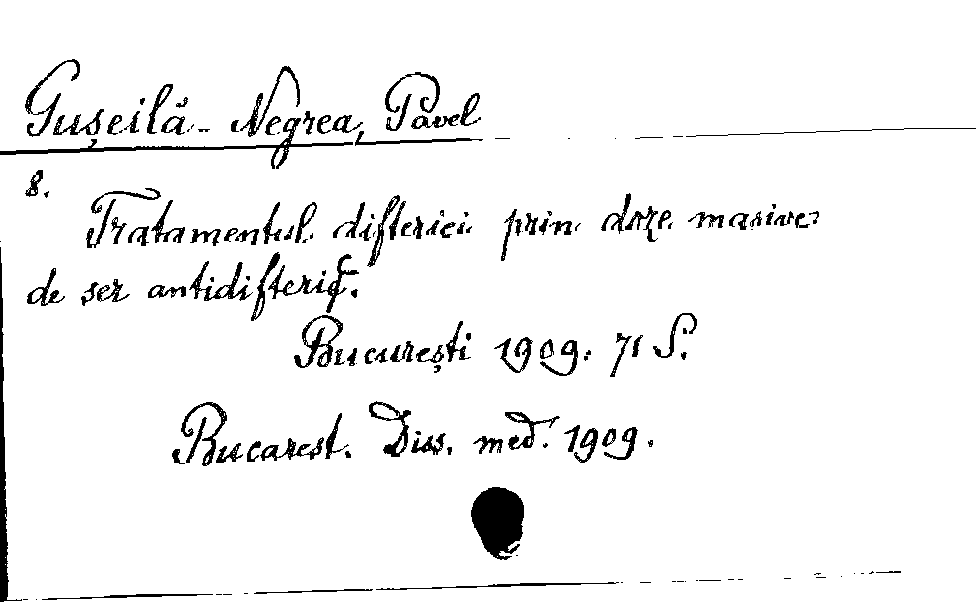 Gușeilă-Negrea, Pavel
8.
Tratamentul difteriei prin doze masive
de ser antidifteric.
București 1909. 71 S.
Bucarest. Diss. med. 1909.